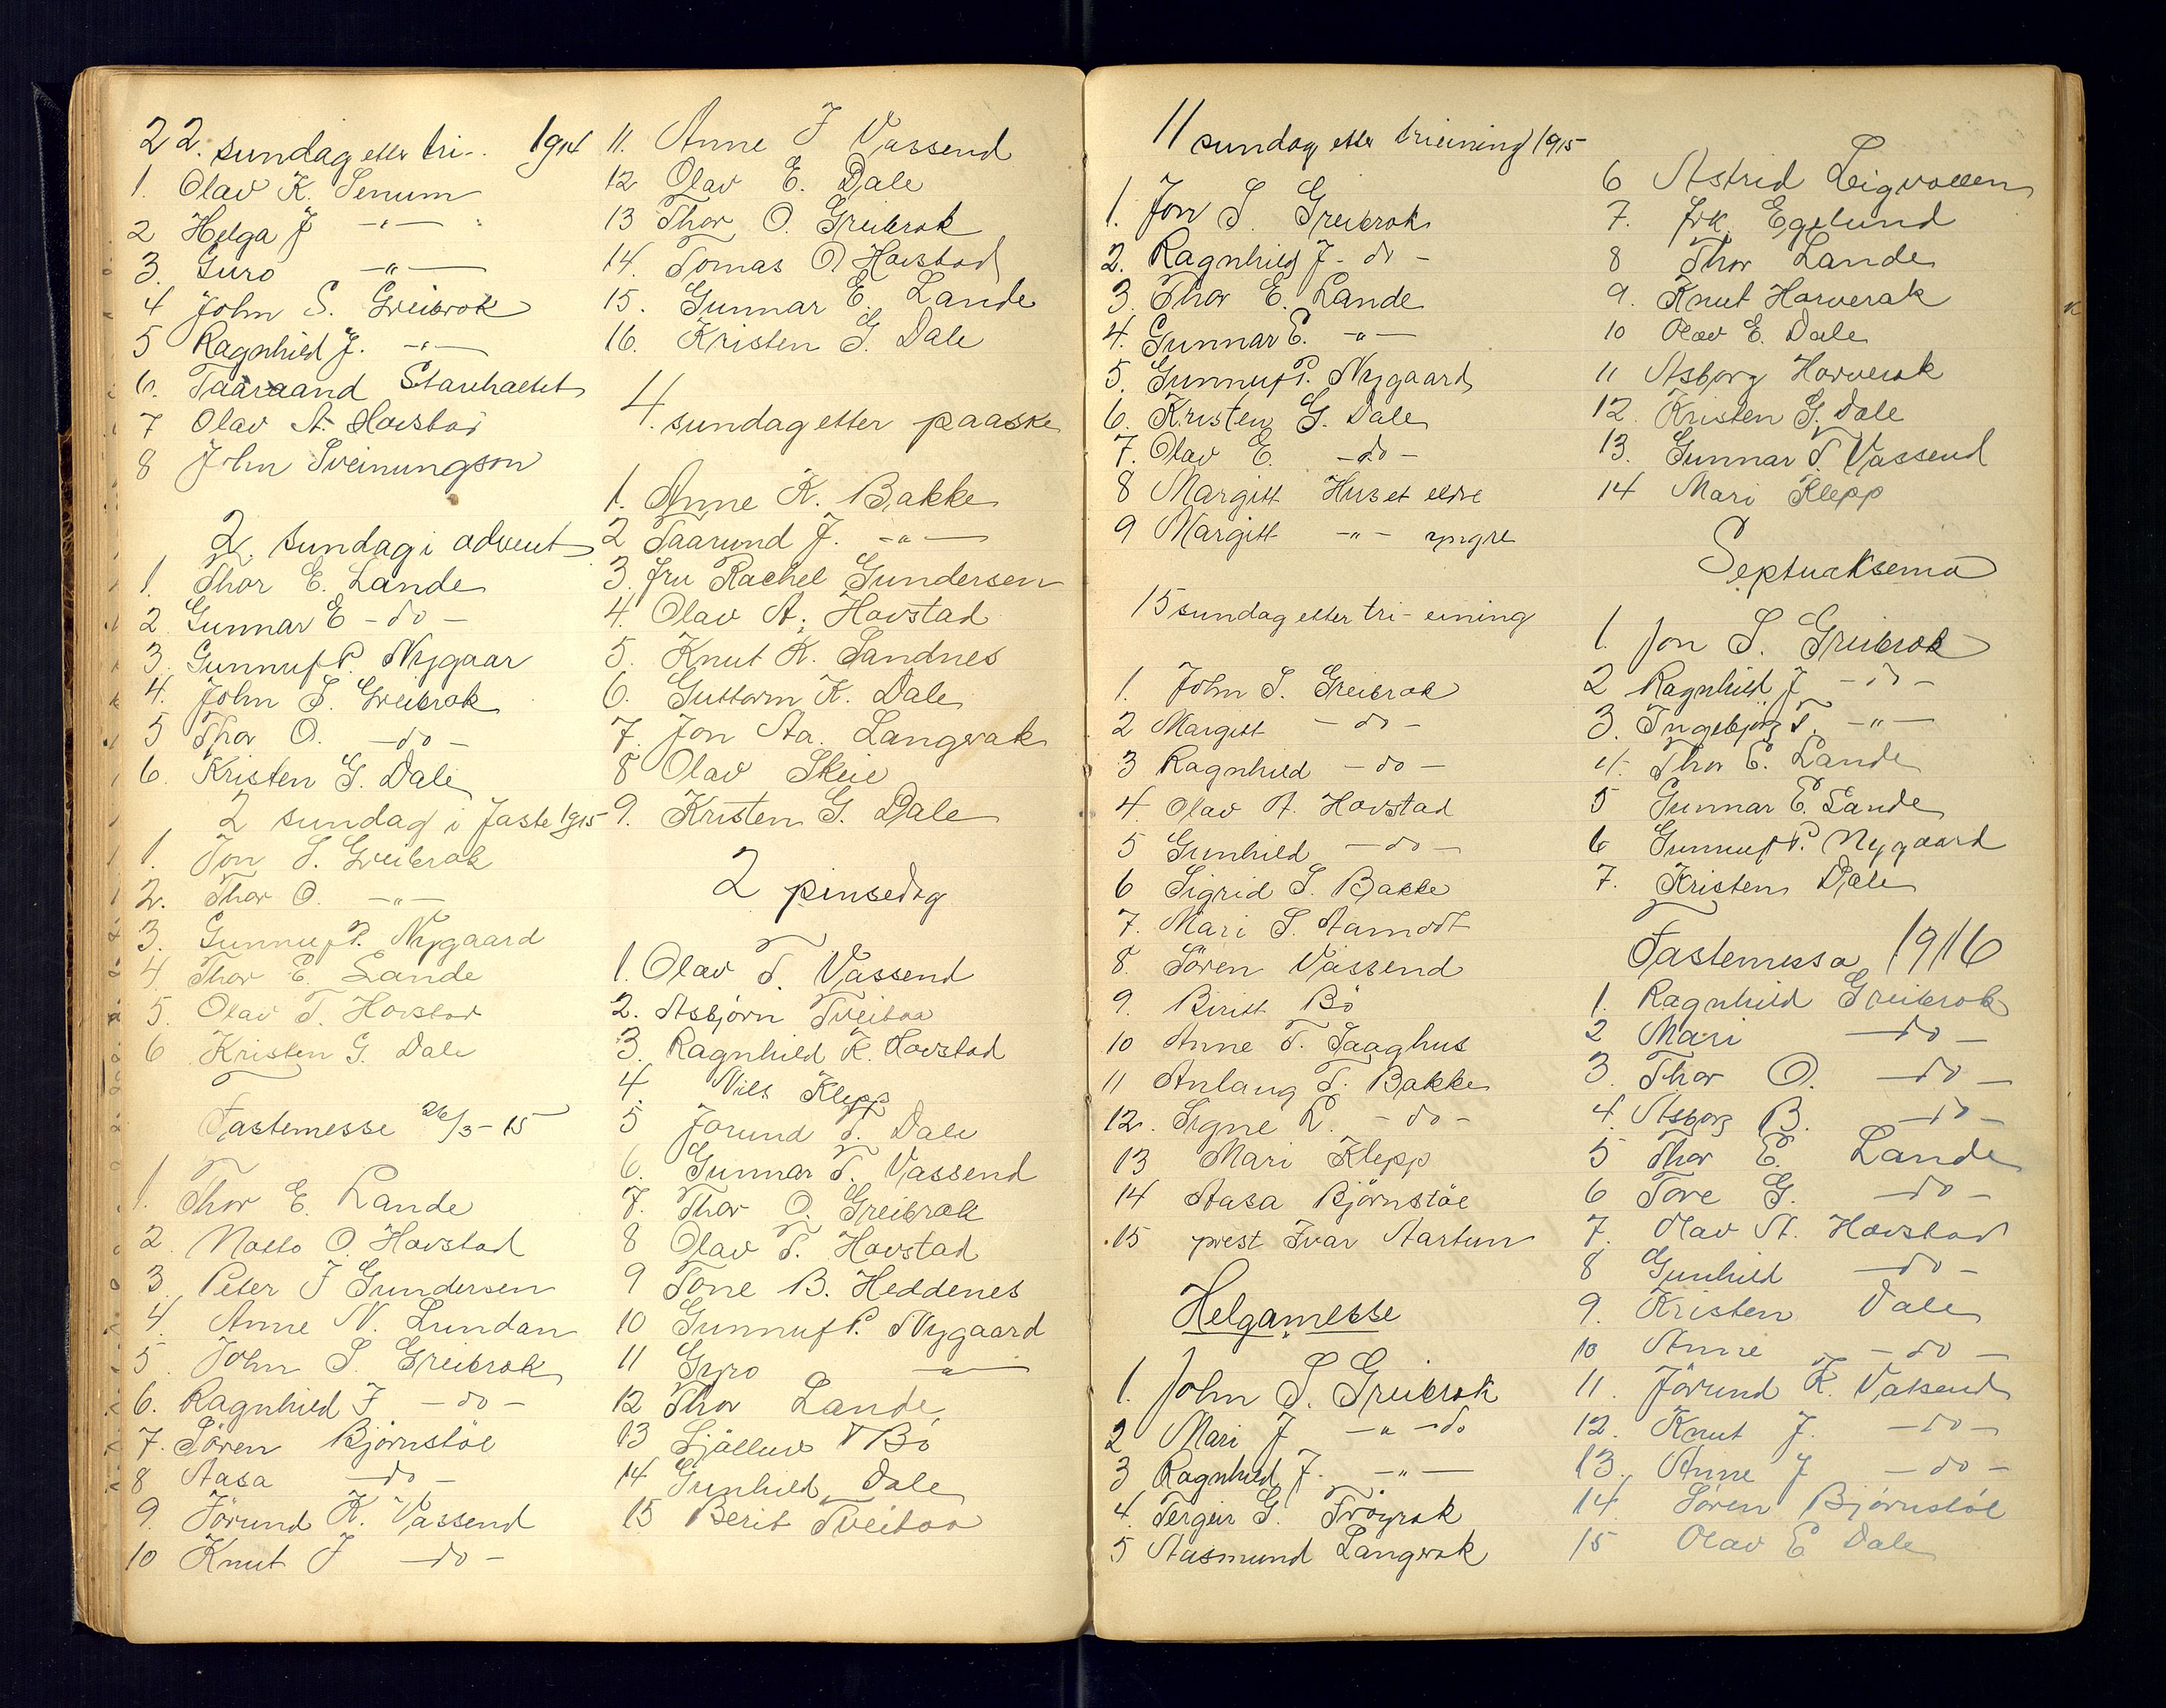 22. sundag etter tri-. 1914
1. Olav K. Senum
2 Helga J —"—
3. Guro —"—
4 John S. Greibrok
5 Ragnhild J. —"—
6. Taaraand
7 Olav A. Hovstad
8 John Sveinungson
2. sundag i advent
1. Thor E. Lande
2 Gunnar E - do -
3. Gunnuf P. Nygaar
4. John S. Greibrok
5 Thor O. - do -
6. Kristen G. Dale
2 sundag i faste 1915
1. Jon S. Greibrok
2. Thor O. —"—
3. Gunnuf P. Nygaard
4. Thor E. Lande
5. Olav T. Hovstad
6 Kristen G. Dale
Fastemesse 26/3-15
1. Thor E. Lande
2. O. Hovstad
3 Peter J Gundersen
4. Anne N. Lundan
5. John S. Greibrok
6. Ragnhild J - do -
7. Sören Björnstöl
8 Aasa - do -
9. Jörund K. Vassend
10 Knut J - do -
11. Anne J Vassend
12 Olav E. Dale
13 Thor O. Greibrok
14. Tomas O Hovstad
15. Gunnar E. Lande
16. Kristen G. Dale
4. sundag etter paaske
1. Anne K. Bakke
2 Taarund J. —"—
3. fru Rachel Gundersen
4. Olav A. Hovstad
5. Knut K. Sandnes
6. Guttorm K. Dale
7. Jon Aa. Langerak
8 Olav Skeie
9. Kristen G. Dale
2 pinsedag
1. Olav T. Vassend
2. Asbjörn Tveitaa
3. Ragnhild K. Hovstad
4. Nils Klepp
5 Jorund T. Dale
6. Gunnar T. Vassend
7. Thor O. Greibrok
8 Olav T. Hovstad
9 Tone B. Heddenes
10 Gunnuf P. Nygaard
11 Gyro —"—
12 Thor Lande
13 Bö
14 Gunhild Dale
15 Berit Tveitaa
11 sundag etter trieining 1915
1. Jon S. Greibrok
2. Ragnhild J - do -
3. Thor E. Lande
4. Gunnar E. —"—
5. Gunnuf P. Nygaard
6. Kristen G. Dale
7. Olav E. - do -
8 Margitt Huset eldre
9 Margitt —"— yngre
15 sundag etter tri-eining
1. John S. Greibrok
2 Margitt - do -
3 Ragnhild - do -
4. Olav A. Hovstad
5 Gunhild - do -
6 Sigrid S. Bakke
7. Mari S. Aamodt
8. Sören Vassend
9. Biritt Bö
10 Anne T. Jaaghus
11 Anlaug T. Bakke
12. Signe L. - do -
13 Mari Klepp
14 Aasa Björnstöl
15 prest Ivar Aartun
Helgamesse
1. John S. Greibrok
2 Mari J —"— do
3 Ragnhild J. —"—
4. Tergeir G. Fröyrak
5 Aasmund Langerak
6 Astrid Leigvollen
7. frk. Egelund
8 Thor Lande
9. Knut Horverak
10 Olav E. Dale
11 Asborg Horverak
12. Kristen G. Dale
13. Gunnar T. Vassend
14 Mari Klepp
Septuaksema
1. Jon S. Greibrok
2 Ragnhild J - do -
3. Ingebjörg T. —"—
4. Thor E. Lande
5 Gunnar E. Lande
6 Gunnuf P. Nygaard
7. Kristen Dale
Fastemessa 1916
1. Ragnhild Greibrok
2 Mari - do -
3. Thor O. - do -
4. Asborg B. - do -
5 Thor E. Lande
6 Tore G. - do -
7. Olav A. Hovstad
8 Gunhild - do -
9. Kristen Dale
10 Anne - do -
11. Jörund K. Vassend
12. Knut J. - do -
13. Anne J - do -
14. Sören Björnstöl
15 Olav E. Dale